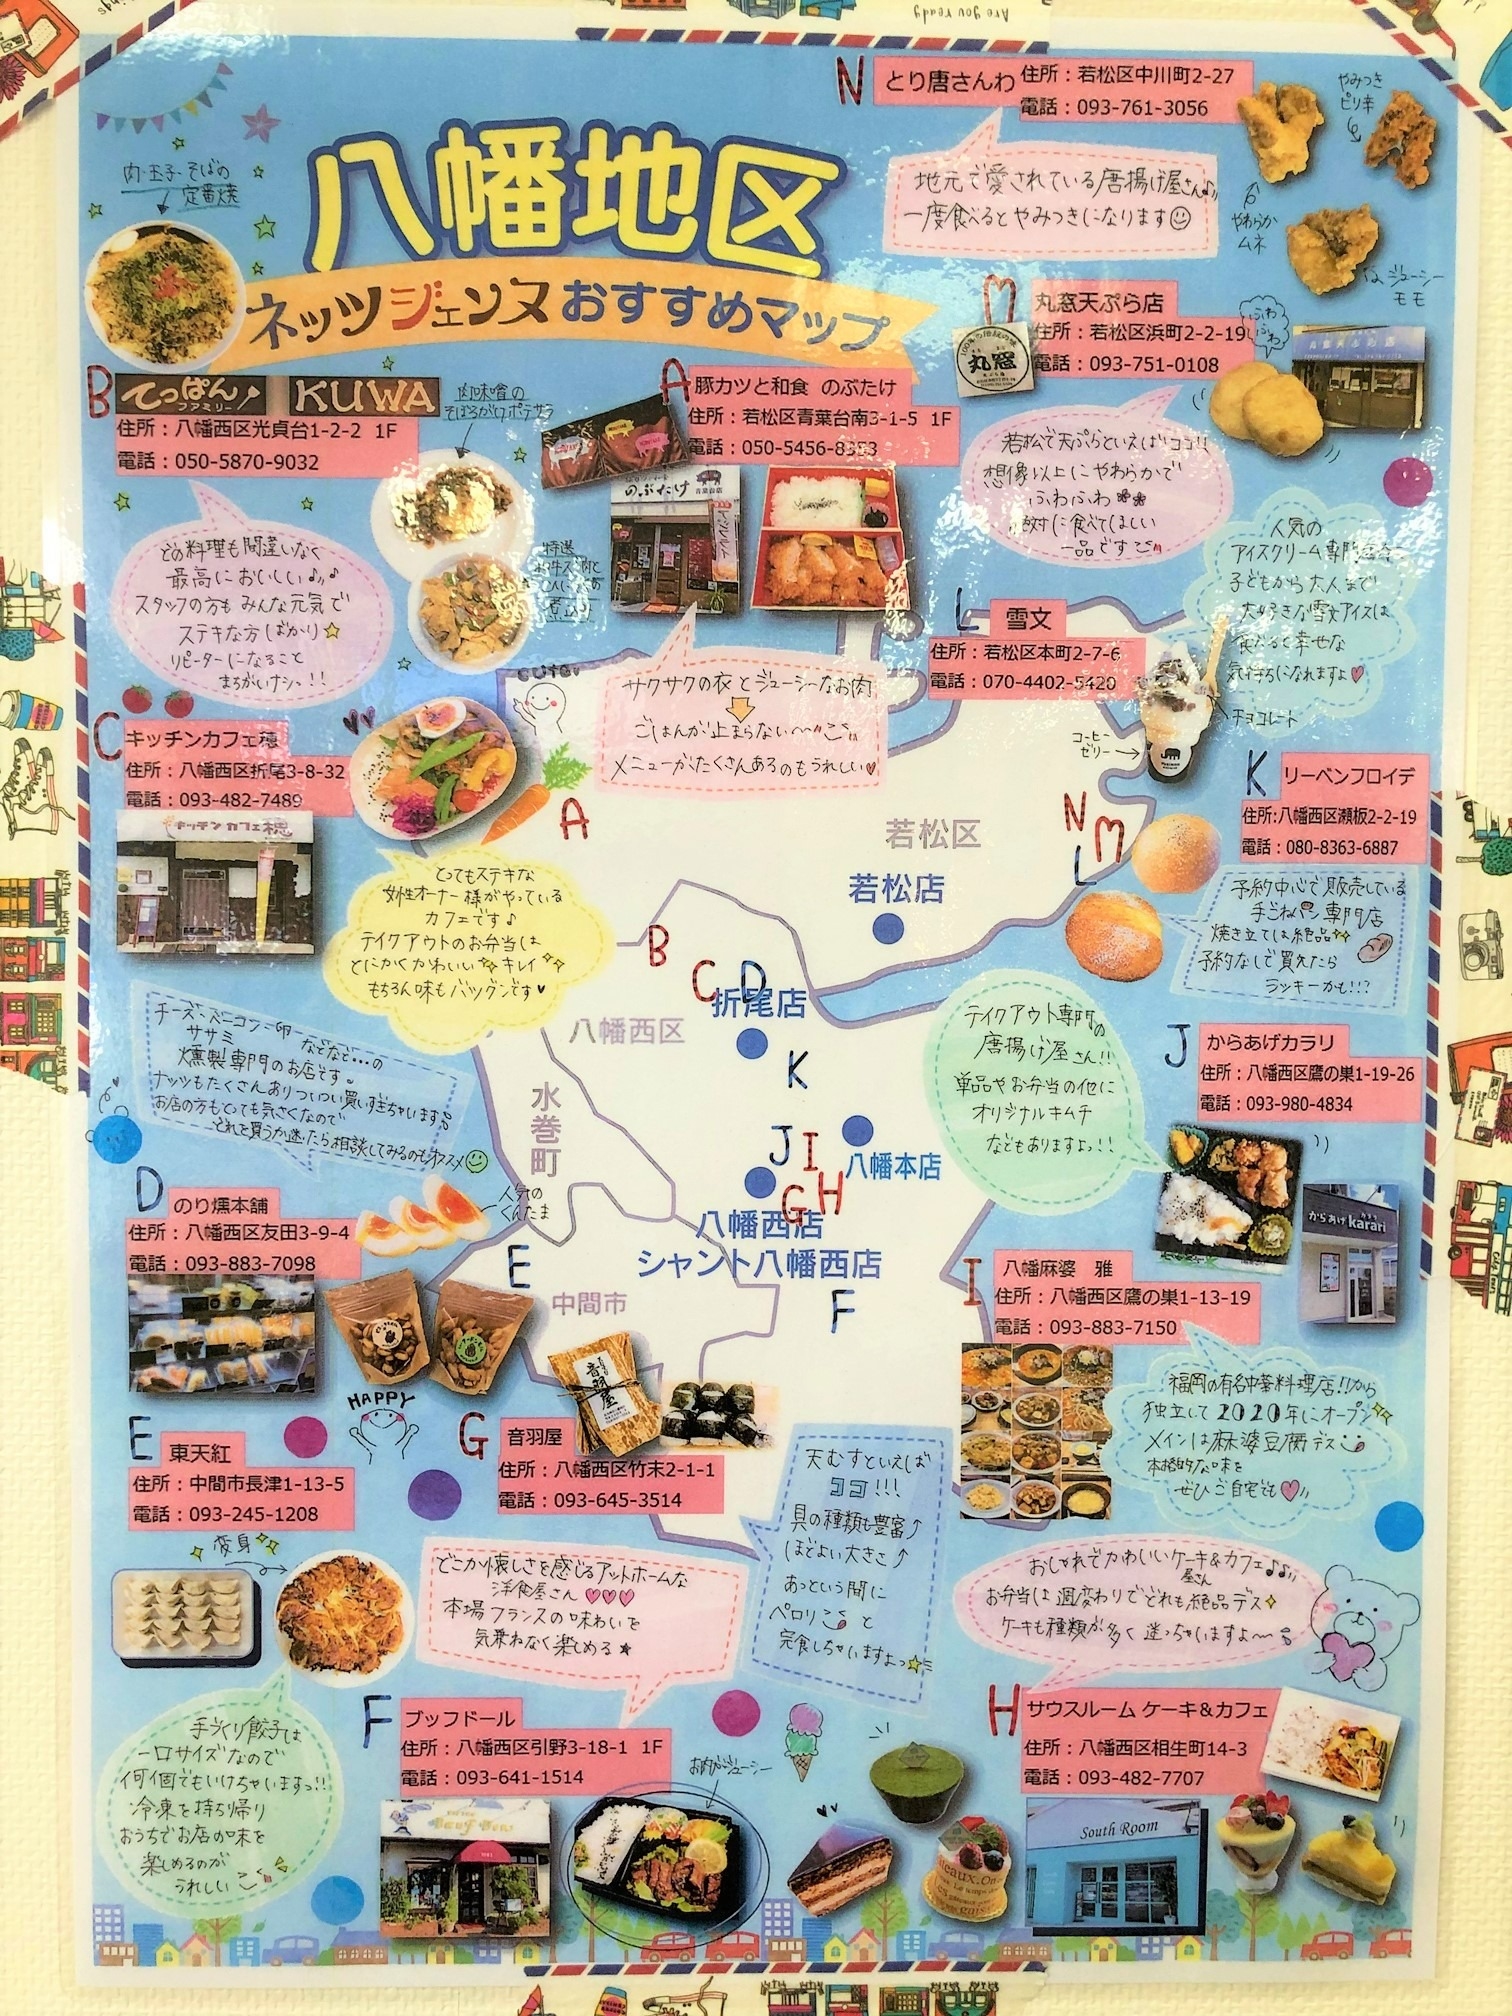 Are you ready
八幡地区
ネッツジェンヌおすすめマップ
肉・玉子・そばの
定番焼
N
とり唐さんわ
住所：若松区中川町2-27
電話：093-761-3056
地元で愛されている唐揚げ屋さん
一度食べるとやみつきになります
やみつき
ピリ辛
やわらか
ムネ
ジューシー
モモ
M
丸窓天ぷら店
住所：若松区浜町2-2-19
電話：093-751-0108
丸窓
ふわ
ふわ
若松で天ぷらといえばココ!!
想像以上にやわらかで
ふわふわ
絶対に食べてほしい
一品です
B
てっぱん
ファミリー
KUWA
住所：八幡西区光貞台1-2-2 1F
電話：050-5870-9032
肉味噌の
そぼろがけポテサラ
特選
どの料理も間違いなく
最高においしい♪
スタッフの方もみんな元気で
ステキな方ばかり☆
リピーターになること
まちがいナシ!!
A
豚カツと和食 のぶたけ
住所：若松区青葉台南3-1-5 1F
電話：050-5456-8353
のぶたけ
サクサクの衣とジューシーなお肉
ごはんが止まらない〜
メニューがたくさんあるのもうれしい♥
cute♪
L
雪文
住所：若松区本町2-7-6
電話：070-4402-5420
人気の
アイスクリーム専門店
子どもから大人まで
大好きな雪文アイスは
食べると幸せな
気持ちになれますよ♥
チョコレート
コーヒー
ゼリー→
C
キッチンカフェ穂
住所：八幡西区折尾3-8-32
電話：093-482-7489
キッチンカフェ穂
とってもステキな
女性オーナー様がやっている
カフェです♪
テイクアウトのお弁当は
とにかくかわいい キレイ
もちろん味もバツグンです♥
K
リーベンフロイデ
住所:八幡西区瀬板2-2-19
電話：080-8363-6887
予約中心で販売している
手ごねパン専門店
焼き立ては絶品
予約なしで買えたら
ラッキーかも!!?
A
若松区
若松店
N
M
L
B
C
D
折尾店
八幡西区
水巻町
K
J
I
八幡本店
G
H
八幡西店
シャント八幡西店
E
中間市
F
チーズ・ベーコン・卵
ササミ などなど…の
燻製専門のお店です。
ナッツもたくさんありついつい買いすぎちゃいます
お店の方もとっても気さくなので
どれを買うか迷ったら相談してみるのもオススメ
D
のり燻本舗
住所：八幡西区友田3-9-4
電話：093-883-7098
人気の
くんたま
テイクアウト専門の
唐揚げ屋さん!!
単品やお弁当の他に
オリジナルキムチ
などもありますよっ!!
J
からあげカラリ
住所：八幡西区鷹の巣1-19-26
電話：093-980-4834
からあげ karari
I
八幡麻婆 雅
住所：八幡西区鷹の巣1-13-19
電話：093-883-7150
福岡の有名中華料理店!!から
独立して2020年にオープン
メインは麻婆豆腐デス
本格的な味を
ぜひご自宅でも♥
HAPPY
E
東天紅
住所：中間市長津1-13-5
電話：093-245-1208
変身
手づくり餃子は
一口サイズなので
何個でもいけちゃいますっ!!
冷凍を持ち帰り
おうちでお店の味を
楽しめるのが
うれしい
G
音羽屋
住所：八幡西区竹末2-1-1
電話：093-645-3514
音羽屋
天むすといえば
ココ!!!
具の種類も豊富↑
ほどよい大きさ↑
あっという間に
ペロリ と
完食しちゃいますよっ☆
どこか懐しさを感じるアットホームな
洋食屋さん♥♥♥
本場フランスの味わいを
気兼ねなく楽しめる★
F
ブッフドール
住所：八幡西区引野3-18-1 1F
電話：093-641-1514
お肉がジューシー
おしゃれでかわいいケーキ&カフェ♪♪
屋さん
お弁当は週変わりでどれも絶品デス
ケーキも種類が多く迷っちゃいますよ〜
H
サウスルーム ケーキ＆カフェ
住所：八幡西区相生町14-3
電話：093-482-7707
South Room